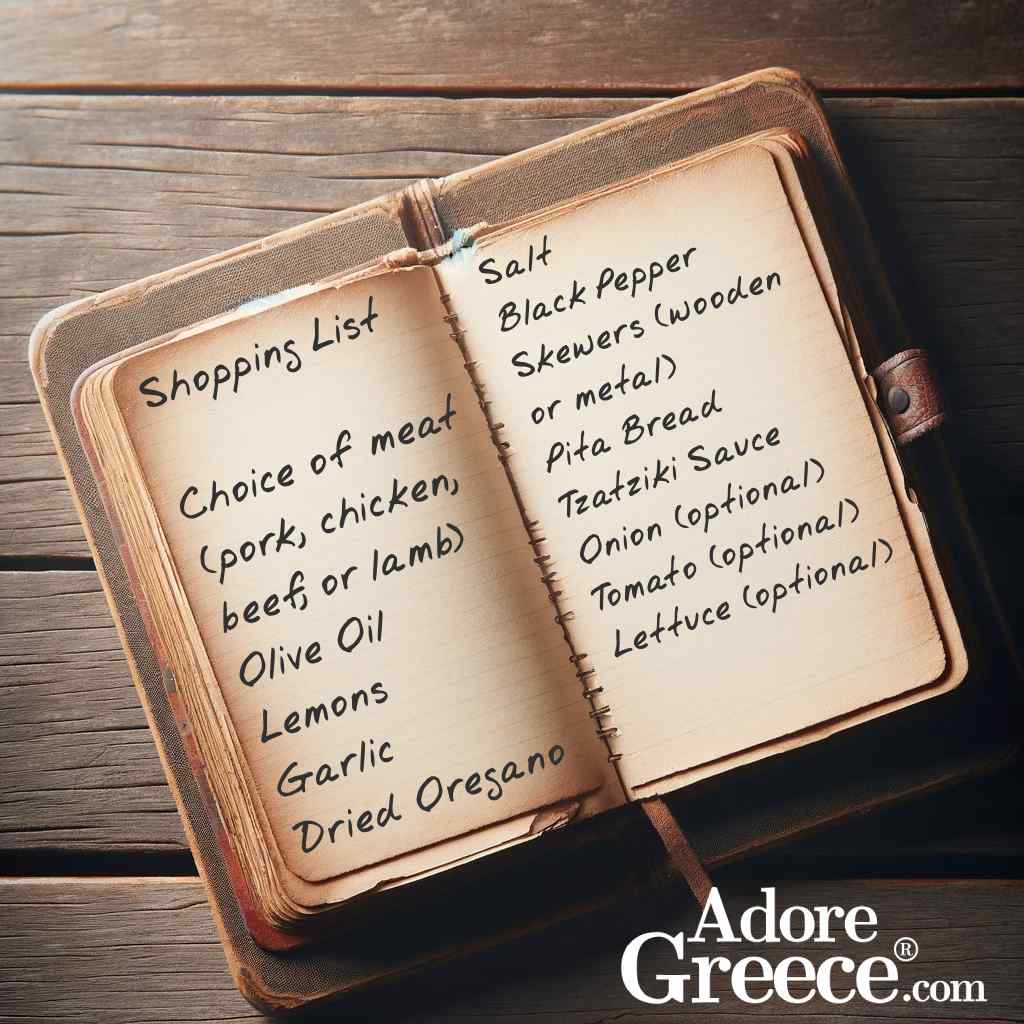 Shopping List
Choice of meat
(pork, chicken,
beef, or lamb)
Olive Oil
Lemons
Garlic
Dried Oregano
Salt
Black Pepper
Skewers (wooden
or metal)
Pita Bread
Tzatziki Sauce
Onion (optional)
Tomato (optional)
Lettuce (optional)
Adore
Greece®.com